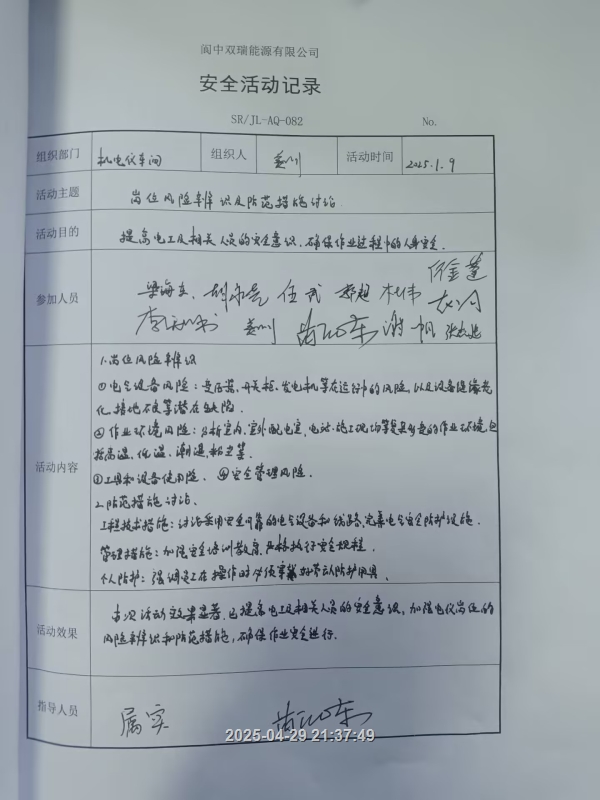 阆中双瑞能源有限公司
安全活动记录
SR/JL-AQ-082 No.
组织部门 机电仪车间 组织人 活动时间 2025.1.9
活动主题 岗位风险辨识及防范措施讨论
活动目的 提高电工及相关人员的安全意识,确保作业过程中的人身安全.
参加人员
任武 郑超 杜伟
活动内容
1.岗位风险辨识
①电气设备风险:变压器、开关柜、发电机等在运行中的风险,以及设备绝缘老
化、接地不良等潜在缺陷.
②作业环境风险:分析室内、室外配电室,电站、施工现场等复杂多变的作业环境,包
括高温、低温、潮湿、粉尘等.
③工具和设备使用风险. ④安全管理风险.
2.防范措施讨论.
工程技术措施:讨论采用安全可靠的电气设备和线路,完善电气安全防护设施.
管理措施:加强安全培训教育,严格执行安全规程.
个人防护:强调员工在操作时必须穿戴好劳动防护用具.
活动效果 本次活动效果显著,已提高电工及相关人员的安全意识,加强电仪岗位的
风险辨识和防范措施,确保作业安全进行.
指导人员 属实
2025-04-29 21:37:49